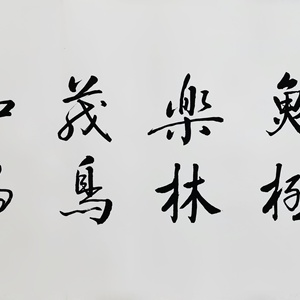 魚極
樂林
茂鳥